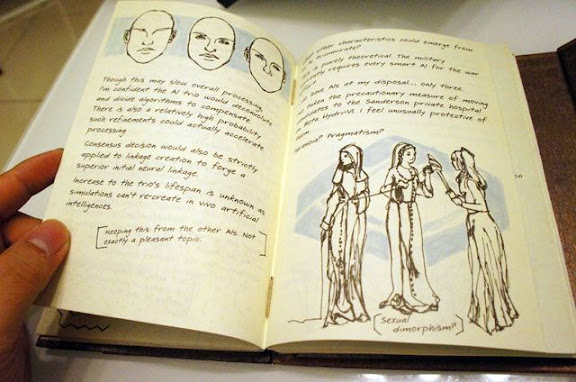 Though this may slow overall processing,
I'm confident the AI trio would deconvolute
and divide algorithms to compensate.
There is also a relatively high probability
such refinements could actually accelerate
processing.
Consensus decision would also be strictly
applied to linkage creation to forge a
superior initial neural linkage.
Increase to the trio's lifespan is unknown as
simulations can't re-create in vivo artificial
intelligences.
Keeping this from the other AIs. Not
exactly a pleasant topic.
other characteristics could emerge from
triumvirate?
is purely theoretical. The military
requires every smart AI for the war
have AIs at my disposal... only three.
taken the precautionary measure of moving
to the Sanderson private hospital
Beta Hydri VI. I feel unusually protective of
Pragmatism?
Sexual
dimorphism?